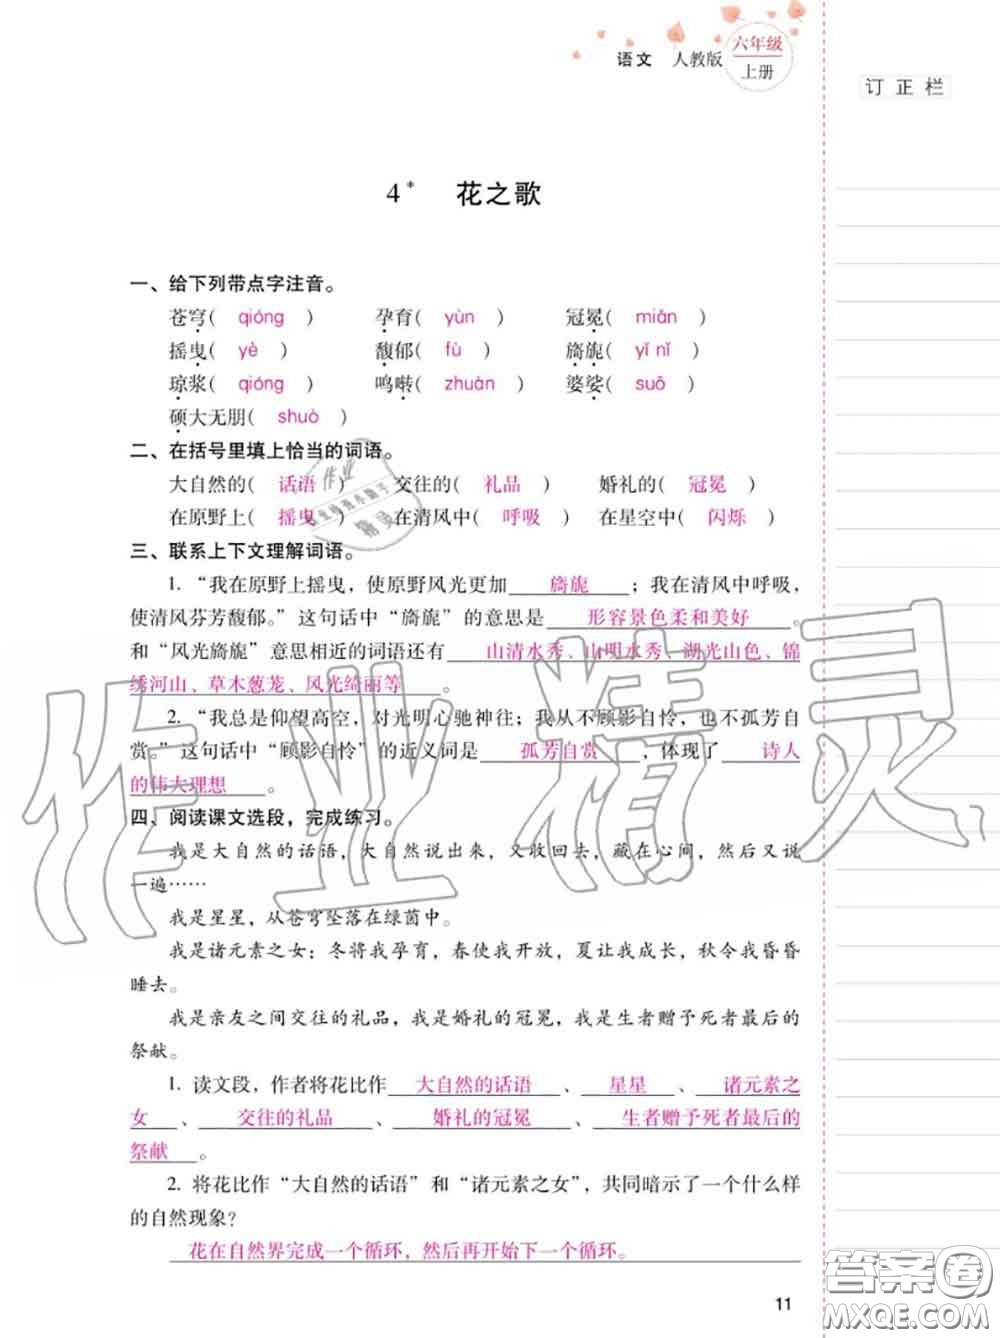 语文 人教版 六年级
上册
订 正 栏
4* 花之歌
一、给下列带点字注音。
苍穹( qióng ) 孕育( yùn ) 冠冕( miǎn )
摇曳( yè ) 馥郁( fù ) 旖旎( yǐ nǐ )
琼浆( qióng ) 鸣啭( zhuàn ) 婆娑( suō )
硕大无朋( shuò )
二、在括号里填上恰当的词语。
大自然的( 话语 ) 交往的( 礼品 ) 婚礼的( 冠冕 )
在原野上( 摇曳 ) 在清风中( 呼吸 ) 在星空中( 闪烁 )
三、联系上下文理解词语。
1. “我在原野上摇曳，使原野风光更加 旖旎 ；我在清风中呼吸，
使清风芬芳馥郁。”这句话中“旖旎”的意思是 形容景色柔和美好 。
和“风光旖旎”意思相近的词语还有 山清水秀、山明水秀、湖光山色、锦
绣河山、草木葱茏、风光绮丽等 。
2. “我总是仰望高空，对光明心驰神往；我从不顾影自怜，也不孤芳自
赏。”这句话中“顾影自怜”的近义词是 孤芳自赏 ，体现了 诗人
的伟大理想 。
四、阅读课文选段，完成练习。
我是大自然的话语，大自然说出来，又收回去，藏在心间，然后又说
一遍……
我是星星，从苍穹坠落在绿茵中。
我是诸元素之女：冬将我孕育，春使我开放，夏让我成长，秋令我昏昏
睡去。
我是亲友之间交往的礼品，我是婚礼的冠冕，我是生者赠予死者最后的
祭献。
1. 读文段，作者将花比作 大自然的话语 、 星星 、 诸元素之
女 、 交往的礼品 、 婚礼的冠冕 、 生者赠予死者最后的
祭献 。
2. 将花比作“大自然的话语”和“诸元素之女”，共同暗示了一个什么样
的自然现象？
花在自然界完成一个循环，然后再开始下一个循环。
11
作业精灵
答案圈
MXQE.COM